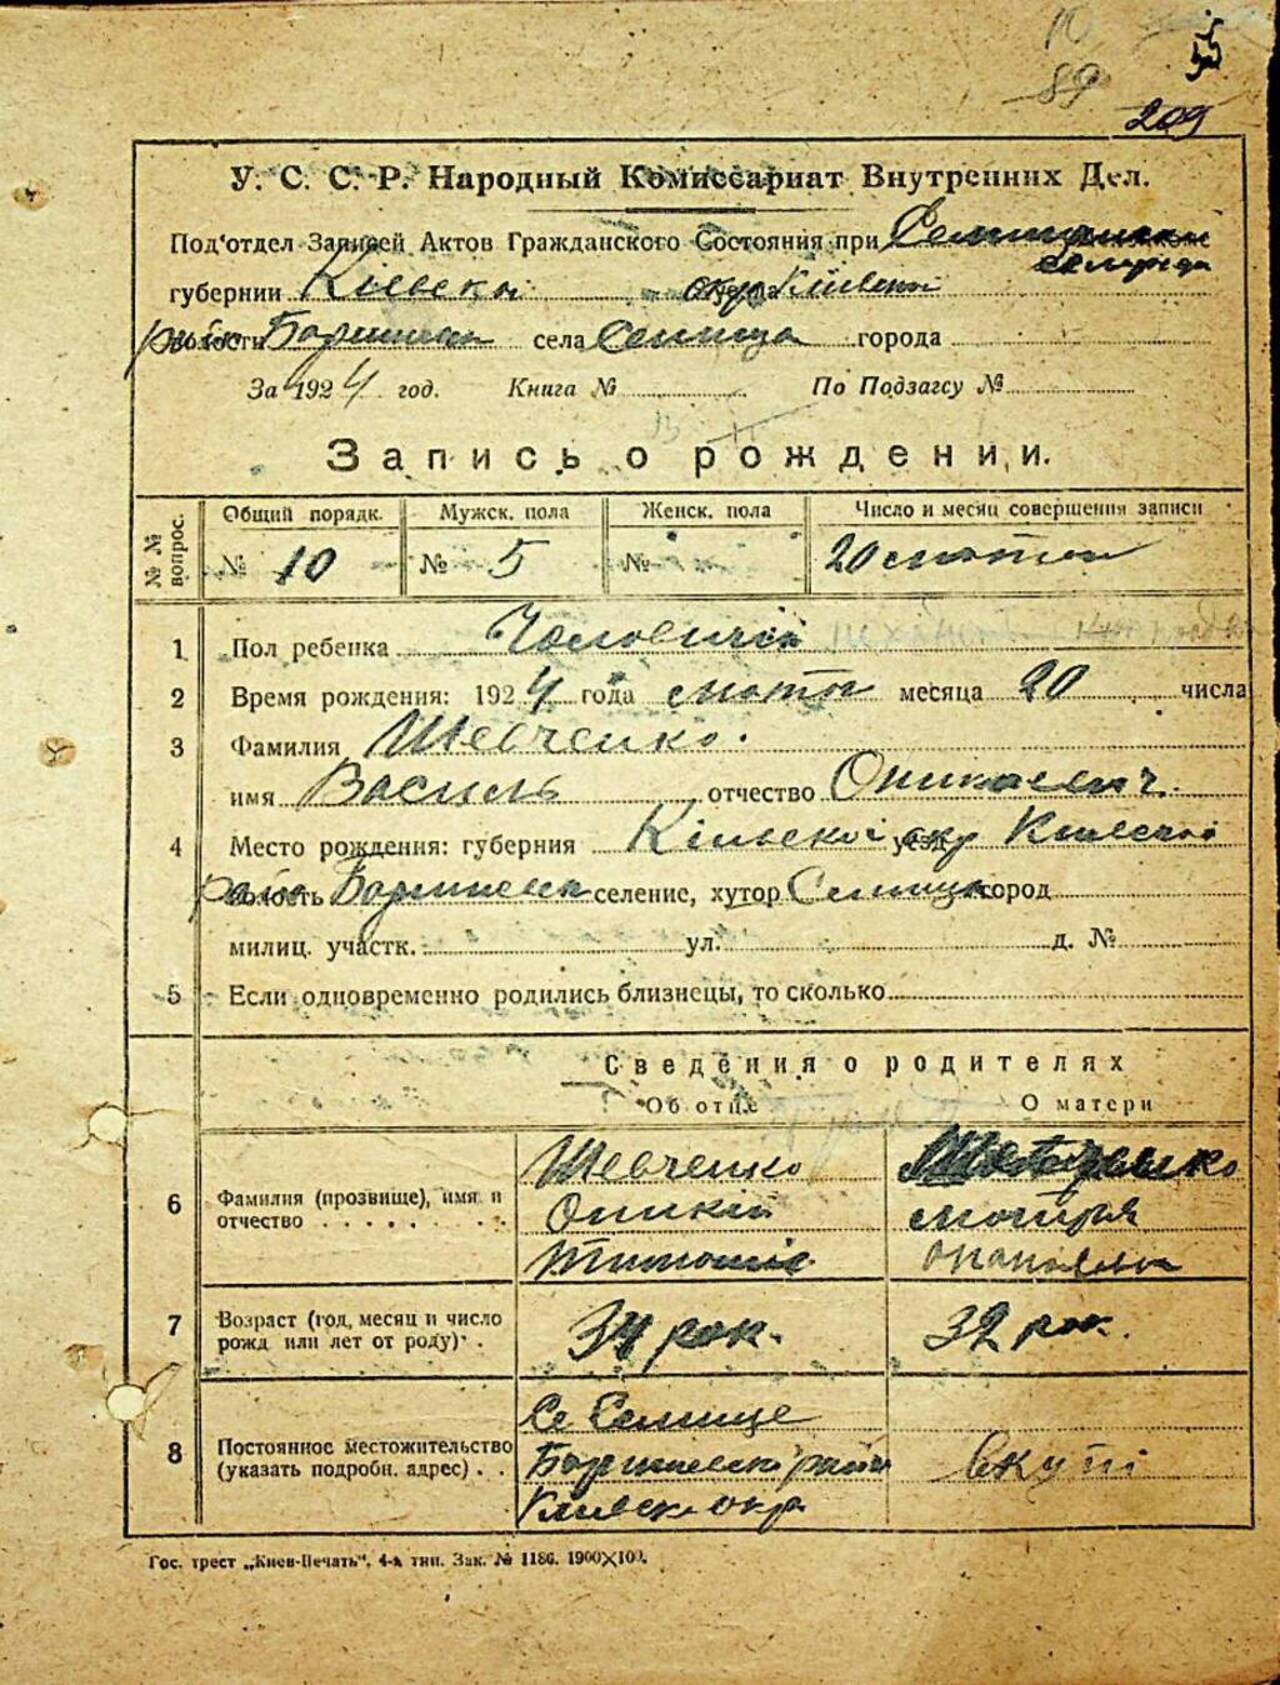 10
89
209
У. С. С. Р. Народный Комиссариат Внутренних Дел.
Под'отдел Записей Актов Гражданского Состояния при
губернии Київської окр Київської
район Баришівськ села Селища города
За 1924 год. Книга № По Подзагсу №
Запись о рождении.
№ № вопрос. Общий порядк. Мужск. пола Женск. пола Число и месяц совершения записи
№ 10 № 5 № 20 лютого
1 Пол ребенка Чоловичій
2 Время рождения: 1924 года лютого месяца 20 числа
3 Фамилия Шевченко.
имя Василь отчество Оникаевич.
4 Место рождения: губерния Київської окр Київської
район Баришівськ селение, хутор Селища город
милиц. участк. ул. д. №
5 Если одновременно родились близнецы, то сколько
Сведения о родителях
Об отце О матери
6 Фамилия (прозвище), имя и отчество Шевченко Оникій Тимошів Шевченко Мотря
7 Возраст (год, месяц и число рожд или лет от роду) 34 рок. 32 рок.
8 Постоянное местожительство (указать подробн. адрес) Се Селище Баришівськ район Київськ окр. вкупі
Гос. трест „Киев-Печать". 4-я тип. Зак. № 1186. 1900×100.